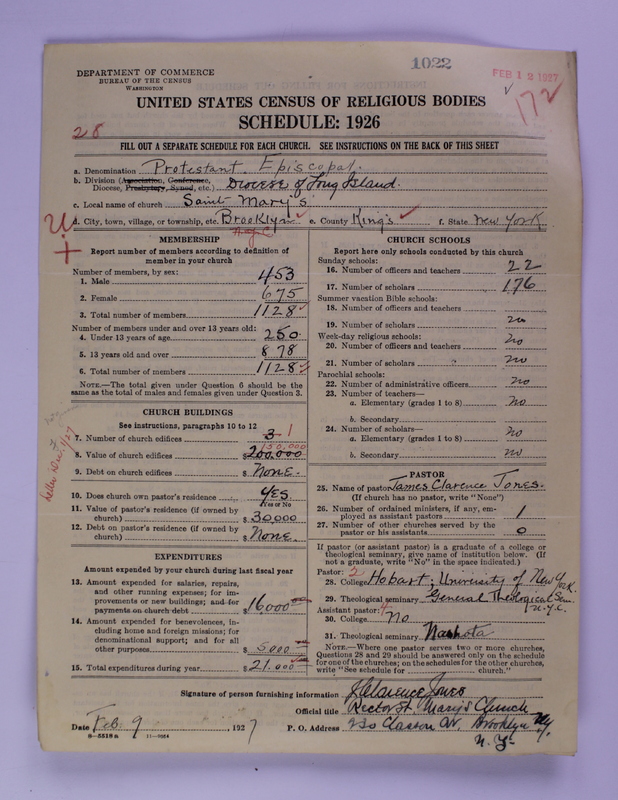 1022
FEB 12 1927
172
DEPARTMENT OF COMMERCE
BUREAU OF THE CENSUS
WASHINGTON
UNITED STATES CENSUS OF RELIGIOUS BODIES
SCHEDULE: 1926
28
FILL OUT A SEPARATE SCHEDULE FOR EACH CHURCH. SEE INSTRUCTIONS ON THE BACK OF THIS SHEET
a. Denomination Protestant Episcopal.
b. Division (Association, Conference, Diocese, Presbytery, Synod, etc.) Diocese of Long Island.
c. Local name of church Saint Mary's
d. City, town, village, or township, etc. Brooklyn e. County King's f. State New York.
MEMBERSHIP
Report number of members according to definition of
member in your church
Number of members, by sex:
1. Male 453
2. Female 675
3. Total number of members 1128
Number of members under and over 13 years old:
4. Under 13 years of age 250
5. 13 years old and over 878
6. Total number of members 1128
NOTE.—The total given under Question 6 should be the
same as the total of males and females given under Question 3.
CHURCH BUILDINGS
See instructions, paragraphs 10 to 12
7. Number of church edifices 3 1
150,000
8. Value of church edifices $ 200,000
9. Debt on church edifices $ None.
10. Does church own pastor's residence Yes
Yes or No
11. Value of pastor's residence (if owned by
church) $ 30,000
12. Debt on pastor's residence (if owned by
church) $ None.
EXPENDITURES
Amount expended by your church during last fiscal year
13. Amount expended for salaries, repairs,
and other running expenses; for im-
provements or new buildings; and for
payments on church debt $ 16,000
14. Amount expended for benevolences, in-
cluding home and foreign missions; for
denominational support; and for all
other purposes $ 5,000
15. Total expenditures during year $ 21,000
CHURCH SCHOOLS
Report here only schools conducted by this church
Sunday schools:
16. Number of officers and teachers 22
17. Number of scholars 176
Summer vacation Bible schools:
18. Number of officers and teachers
19. Number of scholars no
Week-day religious schools:
20. Number of officers and teachers no
21. Number of scholars no
Parochial schools:
22. Number of administrative officers no
23. Number of teachers—
a. Elementary (grades 1 to 8) no
b. Secondary
24. Number of scholars—
a. Elementary (grades 1 to 8) no
b. Secondary no
PASTOR
25. Name of pastor James Clarence Jones.
(If church has no pastor, write "None")
26. Number of ordained ministers, if any, em-
ployed as assistant pastors 1
27. Number of other churches served by the
pastor or his assistants 0
If pastor (or assistant pastor) is a graduate of a college or
theological seminary, give name of institution below. (If
not a graduate, write "No" in the space indicated.)
Pastor: 2
28. College Hobart. University of New York.
29. Theological seminary General Theological Sem.
N.Y.C.
Assistant pastor: 4
30. College No
31. Theological seminary Nashota
NOTE.—Where one pastor serves two or more churches,
Questions 28 and 29 should be answered only on the schedule
for one of the churches; on the schedules for the other churches,
write "See schedule for church."
Signature of person furnishing information J Clarence Jones
Official title Rector St. Mary's Church
Date Feb. 9, 1927 P. O. Address 230 Classon Av. Brooklyn NY.
N.Y.
8-5518 a 11-9084